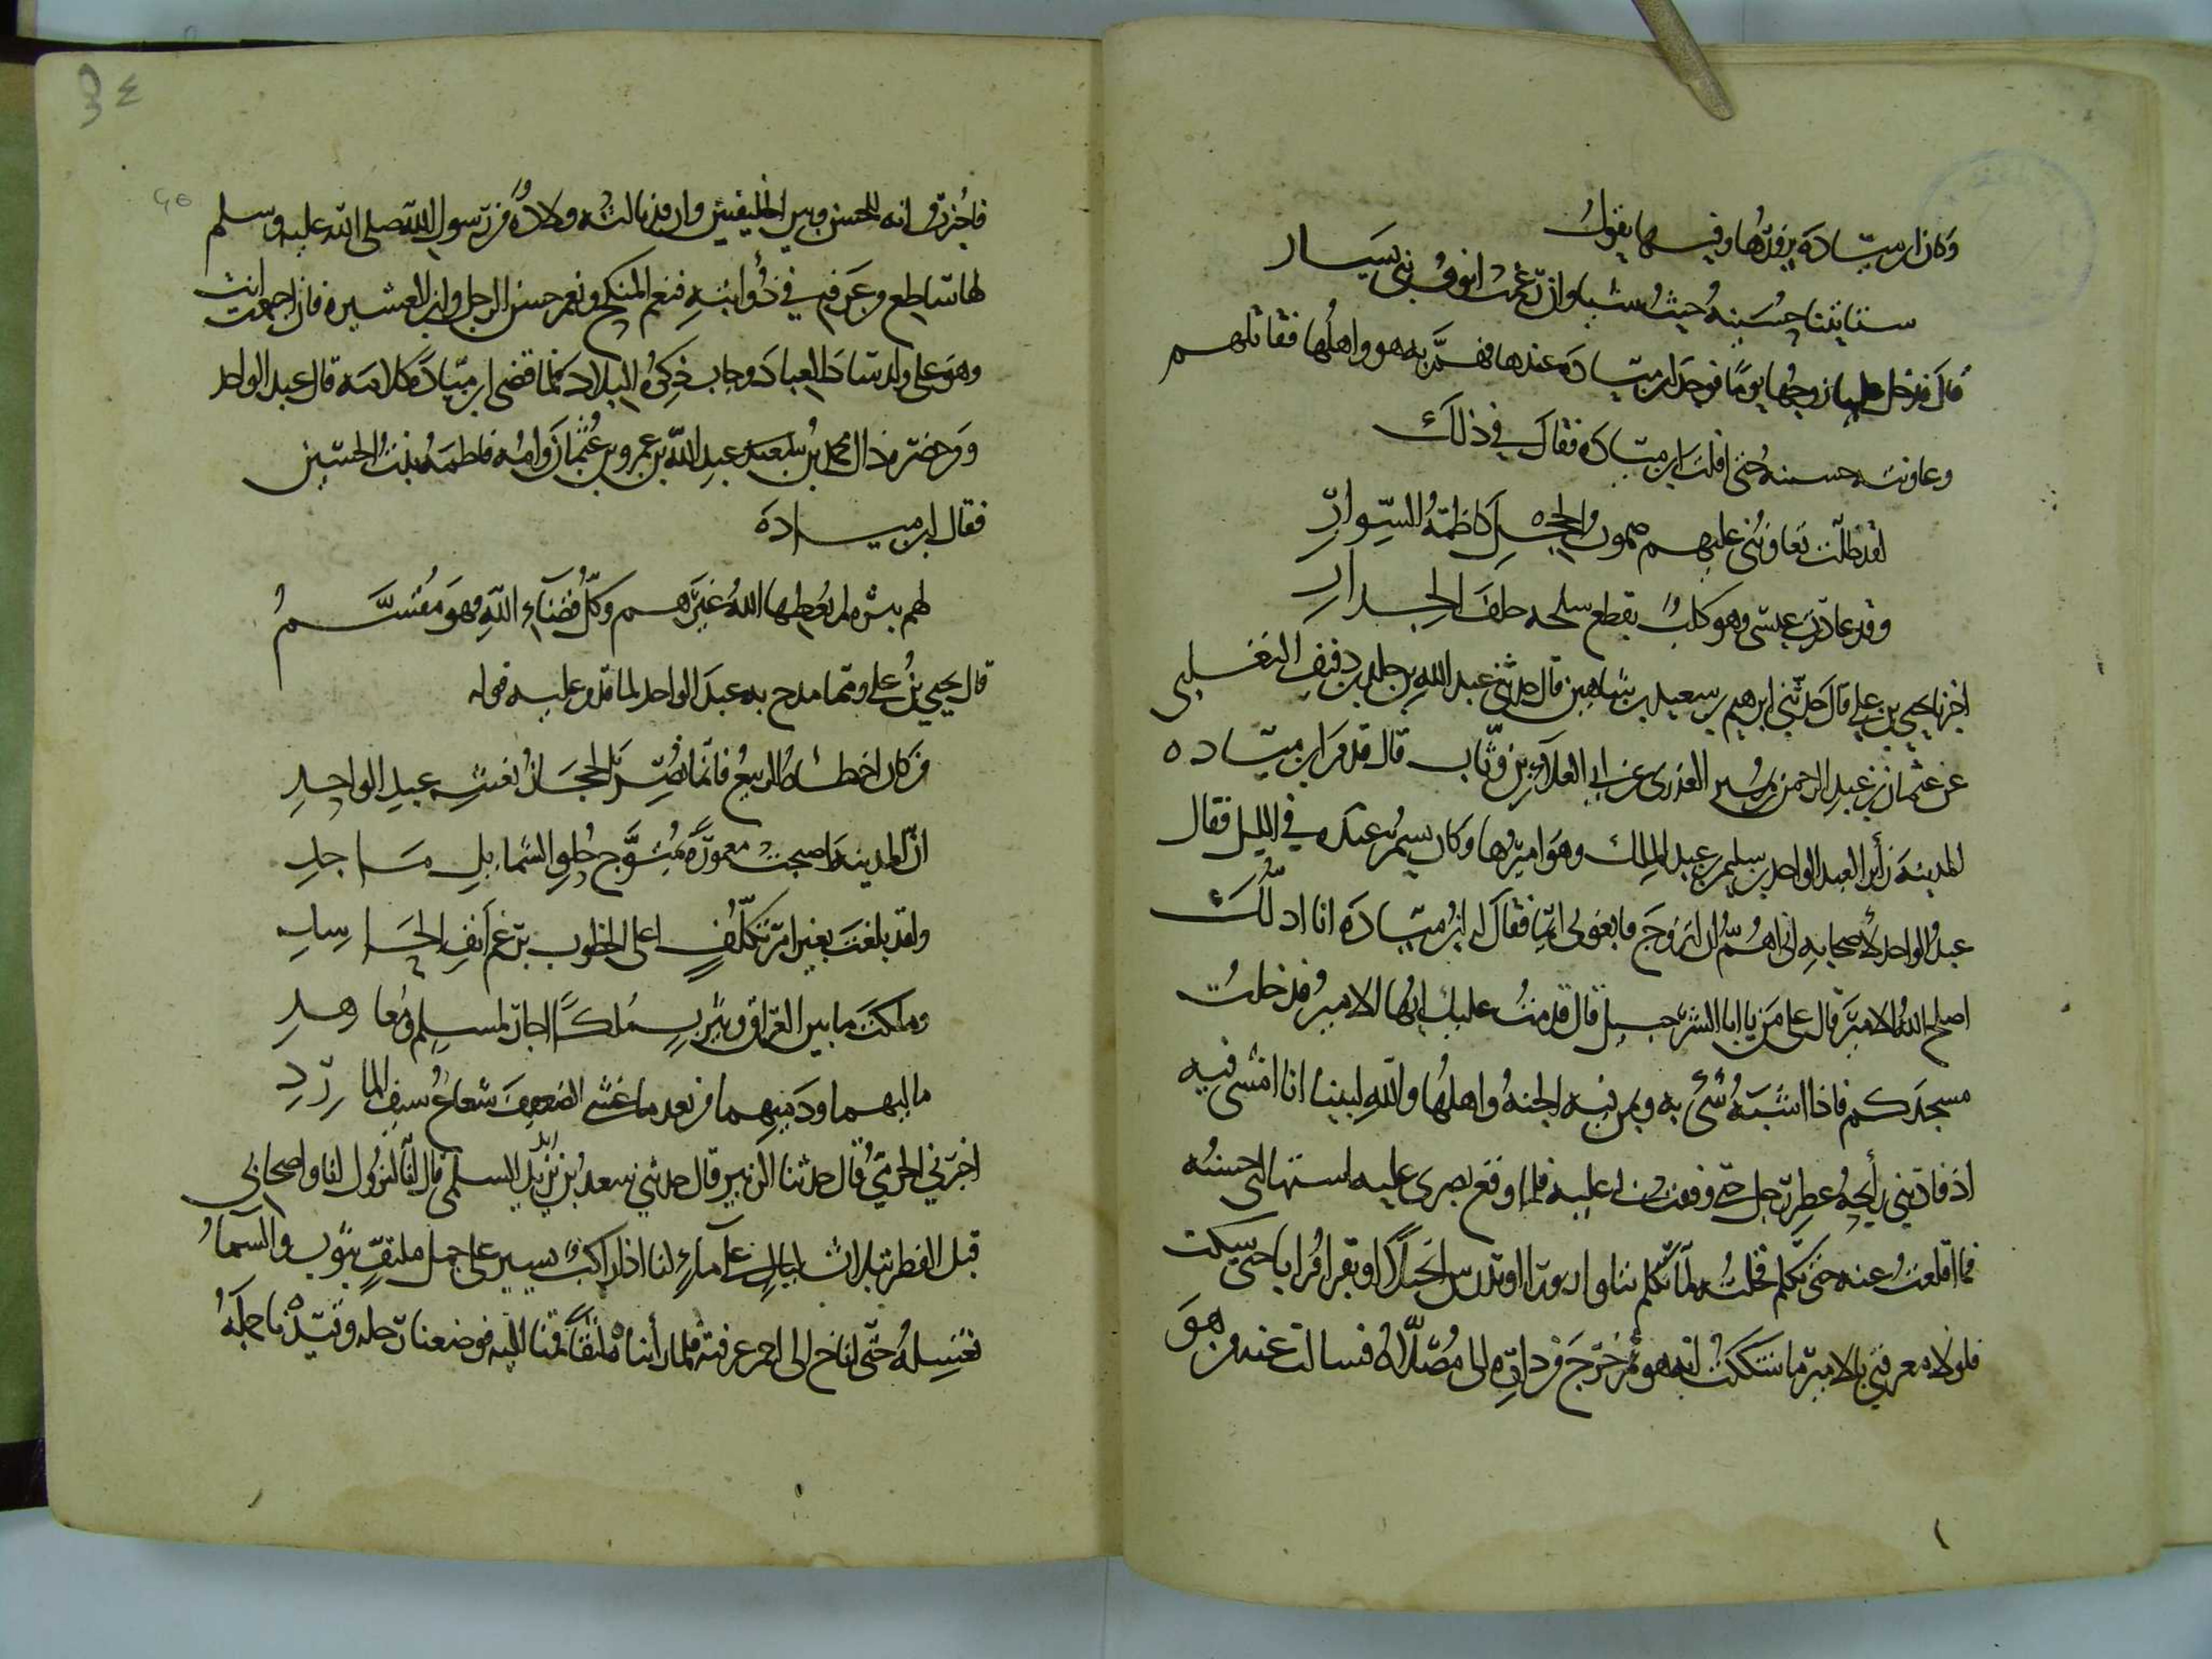 وكان ابن ميادة يزورها وفيها يقول
ستاتينا حسينة حيث شينا وان رغمت انوف بني يسار
قال فدخل عليها زوجها يوما فوجد ابن ميادة عندها فهم به هو واهلها فقاتلهم
وعاونته حسينة حتى افلت ابن ميادة فقال في ذلك
لقد ظلت تعاونني عليهم صموت الحجل كاظمة السوار
وقد غادرت عيسى وهو كلب يقطع سلحه خلف الجدار
اخبرنا يحيى بن علي قال حدثني ابرهيم بن سعيد بن شاهين قال حدثني عبد الله بن خلد بن دفيف التغلبي
عن عثمان بن عبد الرحمن بن العذري عن ابي العلاء بن وثاب قال قدم ابن ميادة
المدينة زائرا لعبد الواحد بن سليمن بن عبد الملك وهو اميرها وكان يسمر عنده في الليل فقال
عبد الواحد لأصحابه اني اهم ان اتزوج فابغوني ايما فقال له ابن ميادة انا ادلك
اصلح الله الامير قال على من يا ابا الشرحبيل قال قدمت عليك ايها الامير فدخلت
مسجدكم فاذا اشبه شيء به وبمن فيه الجنة واهلها والله لبينا انا امشي فيه
اذ قادتني رائحة عطر رجل حتى وقفت بي عليه فلما وقع بصري عليه استلهاني حسنه
فما اقلعت عنه حتى تكلم فخلته لما تكلم يتلو زبورا او يدرس انجيلا او يقرا قرانا حتى سكت
فلولا معرفتي بالامير ما شككت انه هو ثم خرج من داره الى مصلاه فسالت عنه من هو
٣٤
٢٥
فاخبرت انه للحسن وبين الخليفتين وان قد نالته ولادة من رسول الله صلى الله عليه وسلم
لها ساطع وغرة في ذؤابته فنعم المنكح ونعم حشو الرجل وابن العشيرة فان اجتمعت انت
وهو على ولد ساد العباد وجاب ذكره البلاد فلما قضى ابن ميادة كلامه قال عبد الواحد
ومن حضره ذاك محمد بن عبد الله بن عمرو بن عثمان وامه فاطمة بنت الحسين
فقال ابن ميادة
لهم سيرة لم يعطها الله غيرهم وكل قضاء الله فهو مقسم
قال يحيى بن علي ومما مدح به عبد الواحد لما قدم عليه قوله
من كان اخطاه الربيع فانما نصر الحجاز بغيث عبد الواحد
ان المدينة اصبحت معمورة بمتوج حلو الشمائل ماجد
ولقد بلغت بغير امر تكلف اعلى الحظوظ برغم انف الحاسد
وملكت ما بين العراق ويثرب ملكا اجار لمسلم ومعاهد
ماليهما ودميهما من بعد ما غشى الضعيف شعاع سيف المارد
اخبرني الحرمي قال حدثنا الزبير قال حدثني سعد بن زيد السلمي قال انا لنزول انا واصحابي
قبل الفطر بثلاث ليال على ماء لنا اذا راكب يسير على جمل ملتف بثوب والسماء
تغسله حتى اناخ الى اجم عرفته فلما رأيناه لثقا قمنا اليه فوضعنا رحله وقيدنا جمله